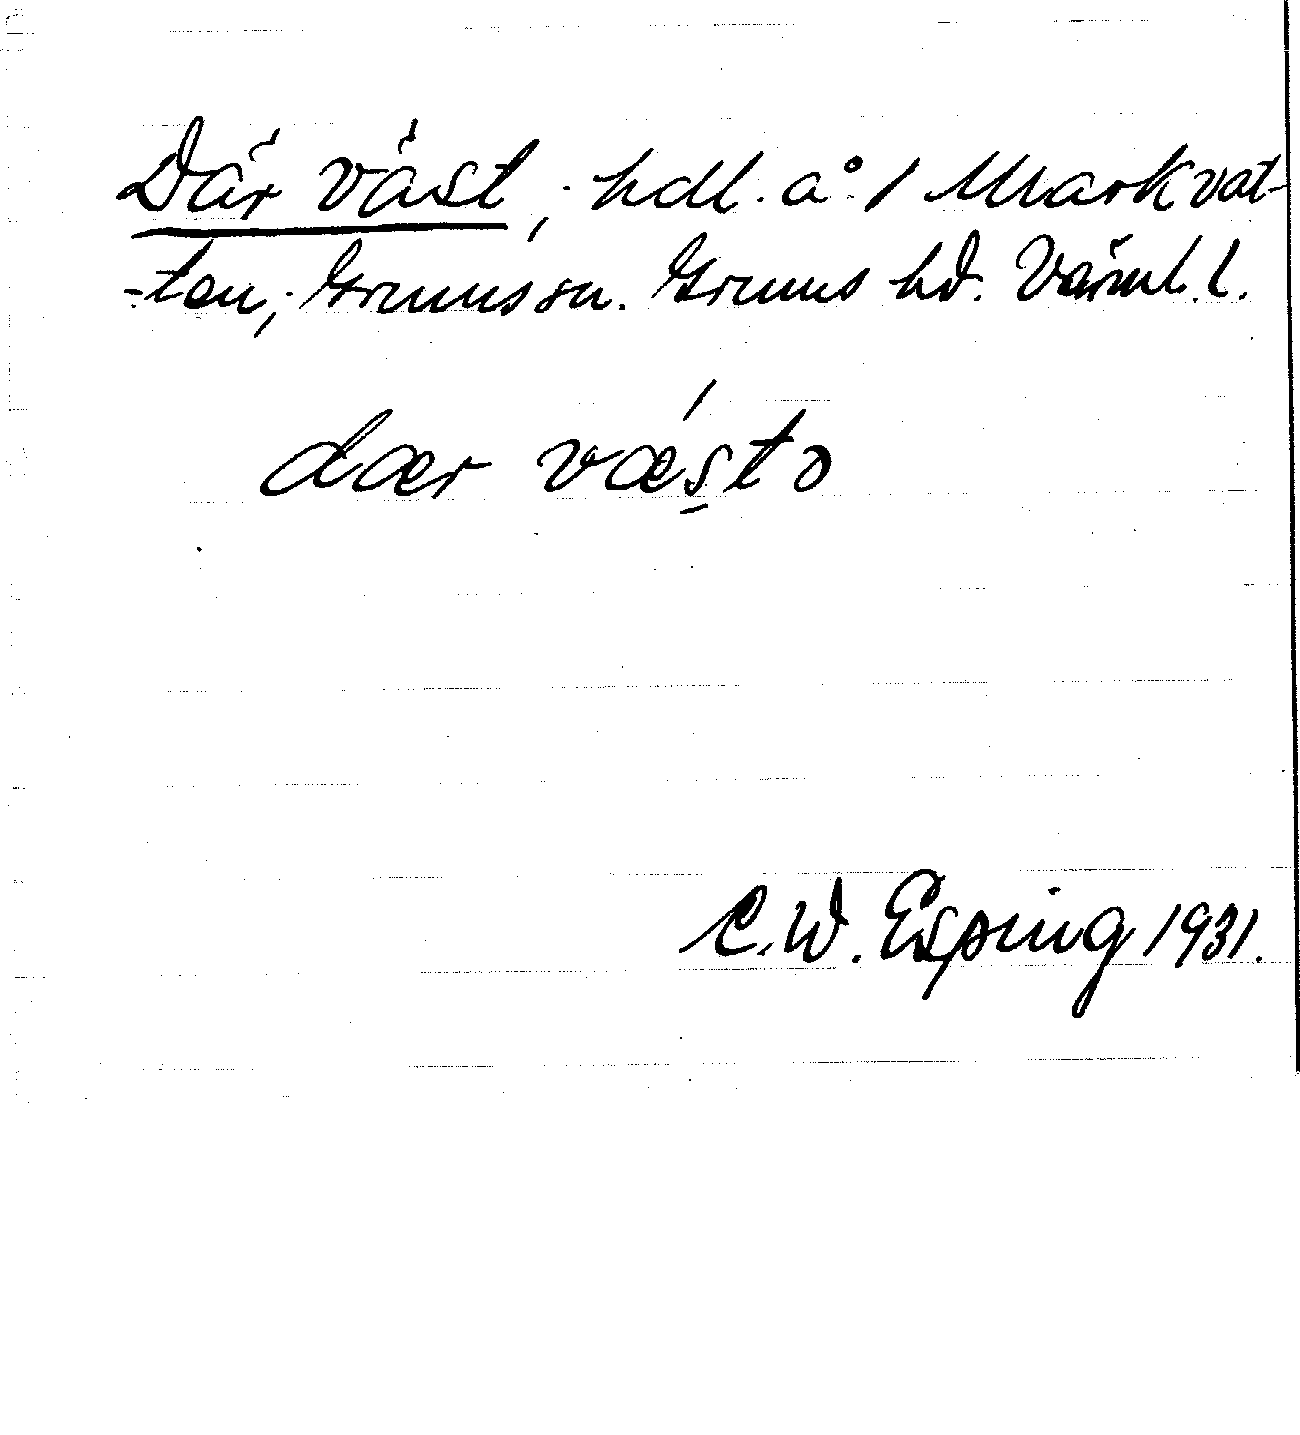 Där väst, hdl. å 1 Markvat-
-ten, Grums sn. Grums hd. Värml. l.
dær væsto
C. W. Esping 1931.